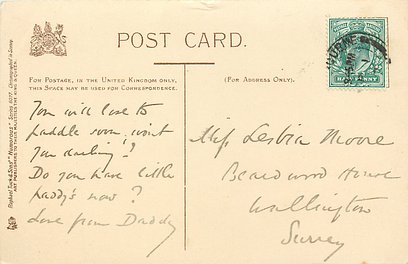 POST CARD.
FOR POSTAGE, IN THE UNITED KINGDOM ONLY,
THIS SPACE MAY BE USED FOR CORRESPONDENCE.
(FOR ADDRESS ONLY.)
You will love to
paddle soon, won't
you darling!?
Do you have little
paddy's now?
Love from Daddy
Miss Lesbia Moore
Beardwood House
Wallington
Surrey
HALFPENNY
Raphael Tuck & Sons' "HUMOROUS" Series
ART PUBLISHERS TO THEIR MAJESTIES THE KING & QUEEN.